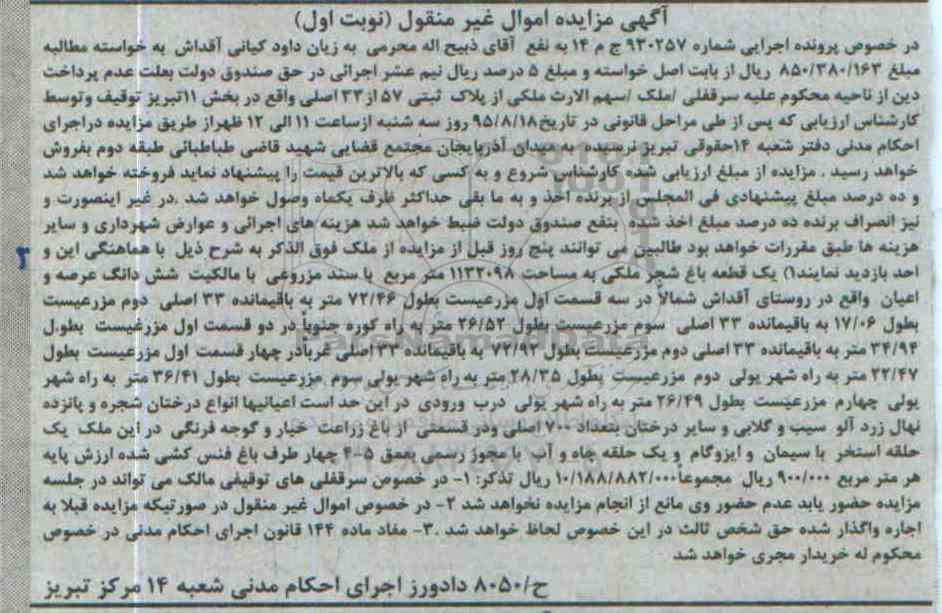 آگهی مزایده اموال غیر منقول (نوبت اول)
در خصوص پرونده اجرایی شماره ۹۳۰۲۵۷ ج م ۱۴ به نفع آقای ذبیح اله محرمی به زیان داود کیانی آقداش به خواسته مطالبه
مبلغ ۸۵۰/۳۸۰/۱۶۳ ریال از بابت اصل خواسته و مبلغ ۵ درصد ریال نیم عشر اجرائی در حق صندوق دولت بعلت عدم پرداخت
دین از ناحیه محکوم علیه سرقفلی /ملک /سهم الارث ملکی از پلاک ثبتی ۵۷ از ۳۳ اصلی واقع در بخش ۱۱تبریز توقیف وتوسط
کارشناس ارزیابی که پس از طی مراحل قانونی در تاریخ۹۵/۸/۱۸ روز سه شنبه ازساعت ۱۱ الی ۱۲ ظهراز طریق مزایده دراجرای
احکام مدنی دفتر شعبه ۱۴حقوقی تبریز نرسیده به میدان آذربایجان مجتمع قضایی شهید قاضی طباطبائی طبقه دوم بفروش
خواهد رسید . مزایده از مبلغ ارزیابی شده کارشناس شروع و به کسی که بالاترین قیمت را پیشنهاد نماید فروخته خواهد شد
و ده درصد مبلغ پیشنهادی فی المجلس از برنده اخذ و به ما بقی حداکثر ظرف یکماه وصول خواهد شد .در غیر اینصورت و
نیز انصراف برنده ده درصد مبلغ اخذ شده بنفع صندوق دولت ضبط خواهد شد هزینه های اجرائی و عوارض شهرداری و سایر
هزینه ها طبق مقررات خواهد بود طالبین می توانند پنج روز قبل از مزایده از ملک فوق الذکر به شرح ذیل با هماهنگی این و
احد بازدید نمایند۱) یک قطعه باغ شجر ملکی به مساحت ۱۱۳۲۰۹۸ متر مربع با سند مزروعی با مالکیت شش دانگ عرصه و
اعیان واقع در روستای آقداش شمالاً در سه قسمت اول مزرعیست بطول ۷۲/۴۶ متر به باقیمانده ۳۳ اصلی دوم مزرعیست
بطول ۱۷/۰۶ به باقیمانده ۳۳ اصلی سوم مزرعیست بطول ۲۶/۵۲ متر به راه کوره جنوباً در دو قسمت اول مزرعیست بطول
۳۴/۹۴ متر به باقیمانده ۳۳ اصلی دوم مزرعیست بطول ۷۲/۹۳ به باقیمانده ۳۳ اصلی غرباًدر چهار قسمت اول مزرعیست بطول
۲۲/۴۷ متر به راه شهر یولی دوم مزرعیست بطول ۲۸/۳۵ متر به راه شهر یولی سوم مزرعیست بطول ۳۶/۴۱ متر به راه شهر
یولی چهارم مزرعیست بطول ۲۶/۴۹ متر به راه شهر یولی درب ورودی در این حد است اعیانیها انواع درختان شجره و پانزده
نهال زرد آلو سیب و گلابی و سایر درختان بتعداد ۷۰۰ اصلی ودر قسمتی از باغ زراعت خیار و گوجه فرنگی در این ملک یک
حلقه استخر با سیمان و ایزوگام و یک حلقه چاه و آب با مجوز رسمی بعمق ۵-۴ چهار طرف باغ فنس کشی شده ارزش پایه
هر متر مربع ۹۰۰/۰۰۰ ریال مجموعاً۱۰/۱۸۸/۸۸۲/۰۰۰ ریال تذکر: ۱- در خصوص سرقفلی های توقیفی مالک می تواند در جلسه
مزایده حضور یابد عدم حضور وی مانع از انجام مزایده نخواهد شد ۲- در خصوص اموال غیر منقول در صورتیکه مزایده قبلا به
اجاره واگذار شده حق شخص ثالث در این خصوص لحاظ خواهد شد .۳- مفاد ماده ۱۴۴ قانون اجرای احکام مدنی در خصوص
محکوم له خریدار مجری خواهد شد
ح/۸۰۵۰ دادورز اجرای احکام مدنی شعبه ۱۴ مرکز تبریز